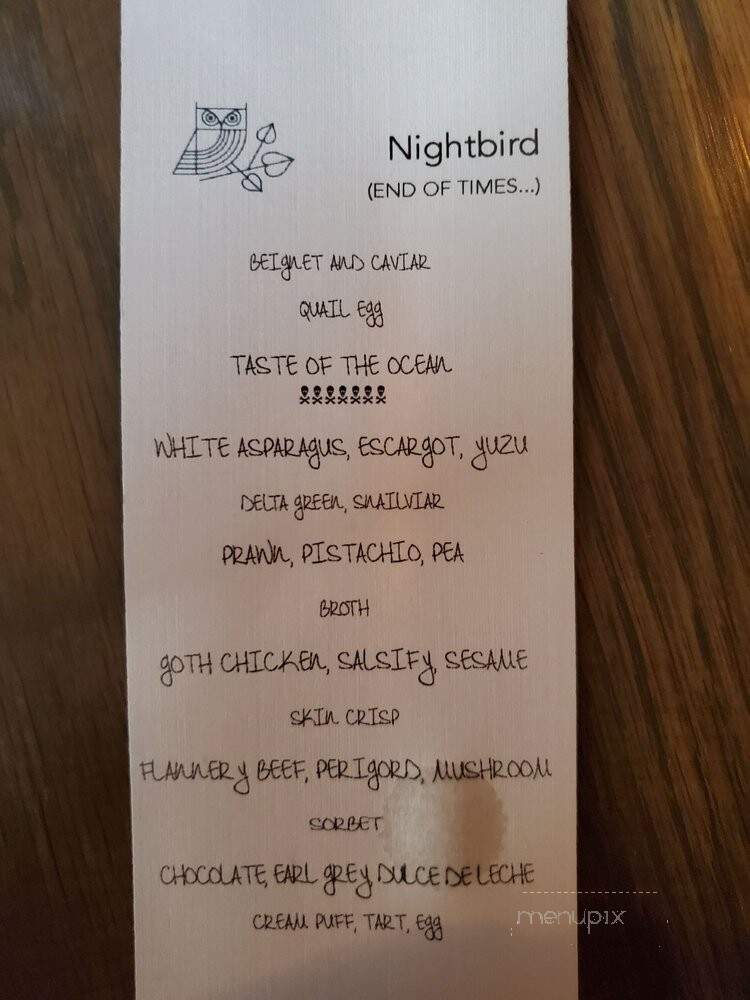 Nightbird
(END OF TIMES...)
BEIgNET AND CAVIAR
QUAIL Egg
TASTE OF THE OCEAN
☠☠☠☠☠☠☠
WHITE ASPARAgUS, ESCARgOT, yUZU
DELTA gREEN, SNAILVIAR
PRAWN, PISTACHIO, PEA
BROTH
gOTH CHICKEN, SALSIFy, SESAME
SKIN CRISP
FLANNERy BEEF, PERIgORD, MUSHROOM
SORBET
CHOCOLATE, EARL gREy, DULCE DE LECHE
CREAM PUFF, TART, Egg
menupix